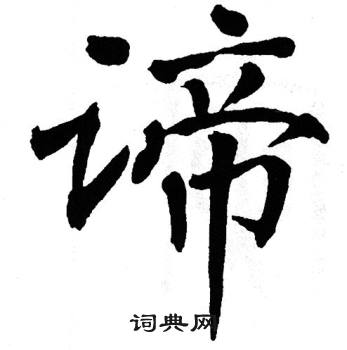 谛
词典网